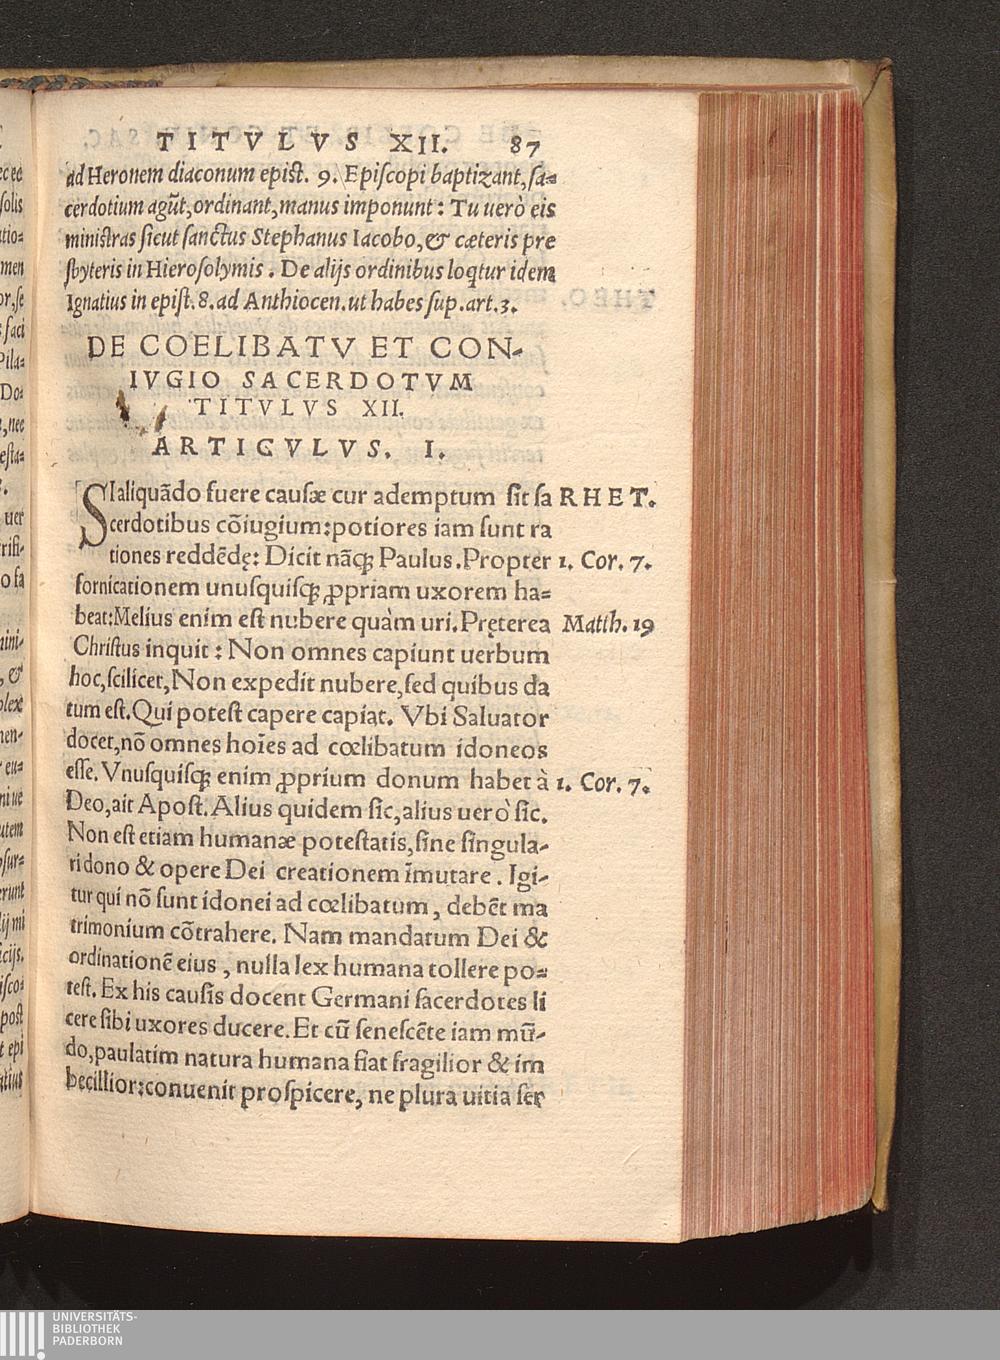 TITVLVS XII. 87
ad Heronem diaconum epist. 9. Episcopi baptizant, sa=
cerdotium agūt, ordinant, manus imponunt: Tu uerò eis
ministras sicut sanctus Stephanus Iacobo, & cæteris pre
sbyteris in Hierosolymis. De alijs ordinibus loqtur idem
Ignatius in epist. 8. ad Anthiocen. ut habes sup. art. 3.
DE COELIBATV ET CON-
IVGIO SACERDOTVM
TITVLVS XII.
ARTICVLVS. I.
SIaliquādo fuere causæ cur ademptum sit sa RHET.
cerdotibus cōiugium: potiores iam sunt ra
tiones reddēdę: Dicit nāq; Paulus. Propter 1. Cor. 7.
fornicationem unusquisq; ꝓpriam uxorem ha=
beat: Melius enim est nubere quàm uri. Pręterea Matth. 19
Christus inquit: Non omnes capiunt uerbum
hoc, scilicet, Non expedit nubere, sed quibus da
tum est. Qui potest capere capiat. Vbi Saluator
docet, nō omnes hoīes ad cœlibatum idoneos
esse. Vnusquisq; enim ꝓprium donum habet à 1. Cor. 7.
Deo, ait Apost. Alius quidem sic, alius uerò sic.
Non est etiam humanæ potestatis, sine singula-
ri dono & opere Dei creationem īmutare. Igi-
tur qui nō sunt idonei ad cœlibatum, debēt ma
trimonium cōtrahere. Nam mandatum Dei &
ordinationē eius, nulla lex humana tollere po=
test. Ex his causis docent Germani sacerdotes li
cere sibi uxores ducere. Et cū senescēte iam mū-
do, paulatim natura humana fiat fragilior & im
becillior: conuenit prospicere, ne plura uitia ser
UNIVERSITÄTS-
BIBLIOTHEK
PADERBORN